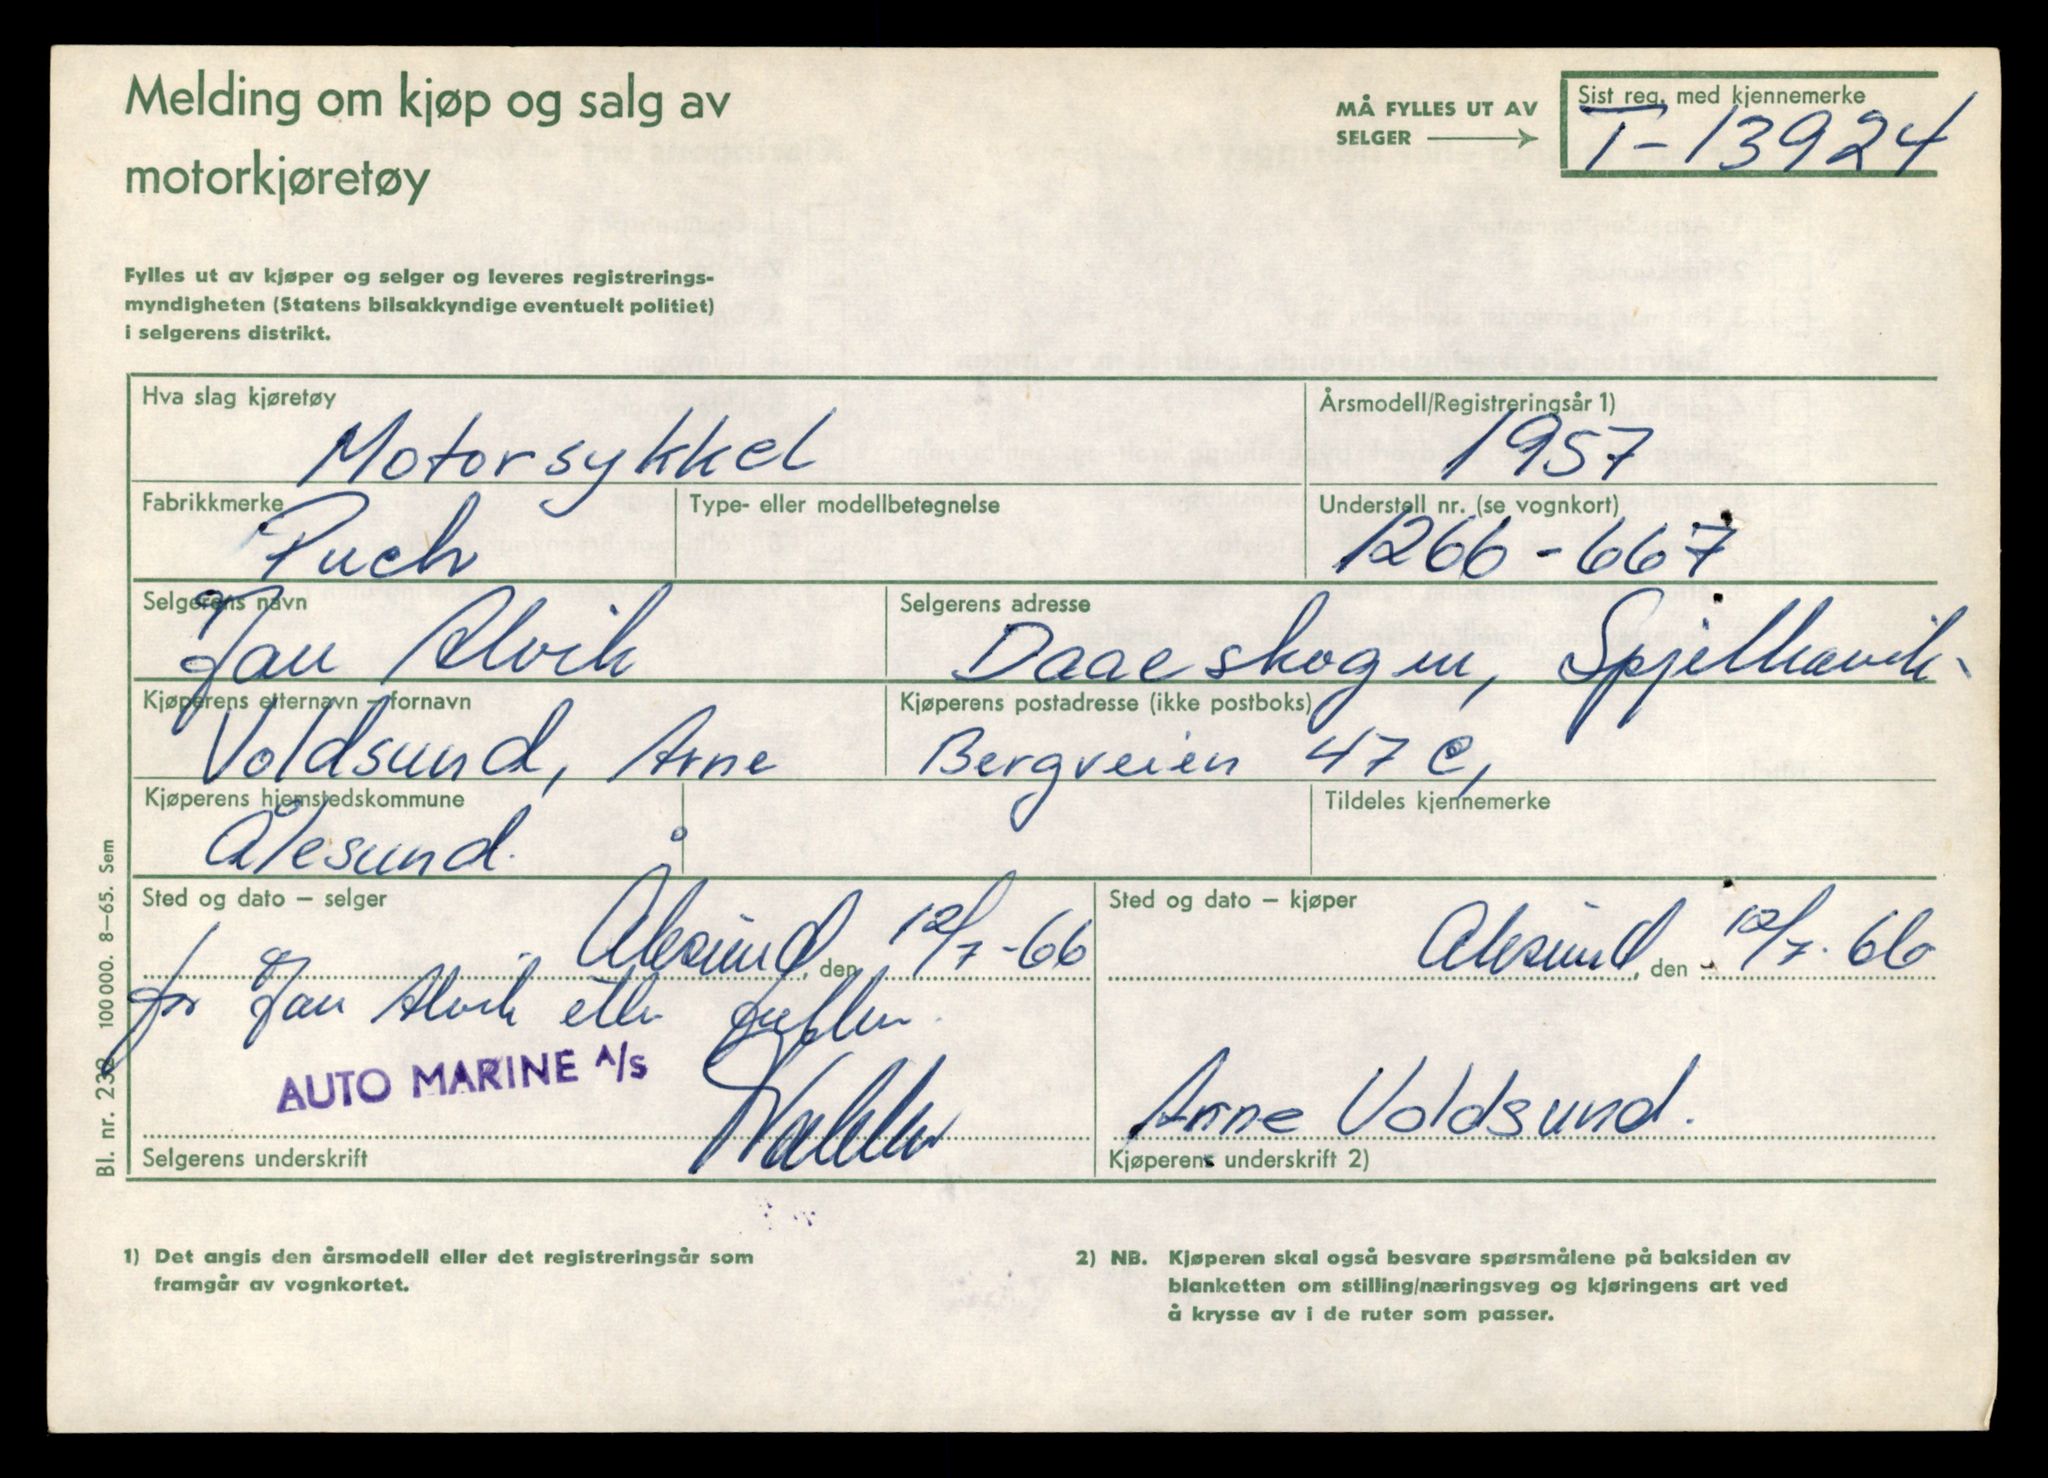 Melding om kjøp og salg av
motorkjøretøy
MÅ FYLLES UT AV
SELGER
Sist reg. med kjennemerke
T-13924
Fylles ut av kjøper og selger og leveres registrerings-
myndigheten (Statens bilsakkyndige eventuelt politiet)
i selgerens distrikt.
Hva slag kjøretøy
Motorsykkel
Årsmodell/Registreringsår 1)
1957
Fabrikkmerke
Puch
Type- eller modellbetegnelse
Understell nr. (se vognkort)
1266-667
Selgerens navn
Jan Alvik
Selgerens adresse
Daaeskogen, Spjelkavik
Kjøperens etternavn - fornavn
Voldsund, Arne
Kjøperens postadresse (ikke postboks)
Bergveien 47 C,
Kjøperens hjemstedskommune
Ålesund.
Tildeles kjennemerke
Sted og dato - selger
Ålesund, den 12/7-66
for Jan Alvik etter
AUTO MARINE A/S
Selgerens underskrift
Sted og dato - kjøper
Ålesund, den 12/7-66
Arne Voldsund.
Kjøperens underskrift 2)
Bl. nr. 232 100 000. 8-65. Sem
1) Det angis den årsmodell eller det registreringsår som
framgår av vognkortet.
2) NB. Kjøperen skal også besvare spørsmålene på baksiden av
blanketten om stilling/næringsveg og kjøringens art ved
å krysse av i de ruter som passer.